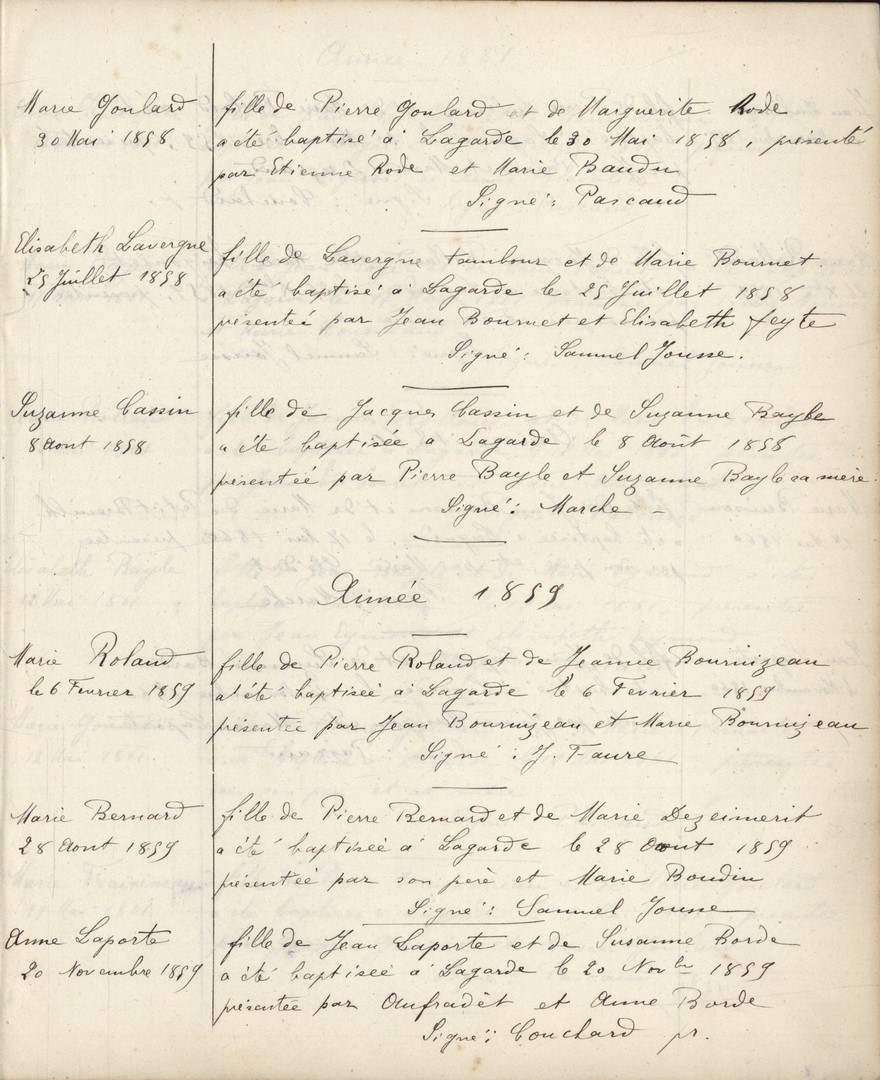 Marie Goulard
30 Mai 1858
fille de Pierre Goulard et de Marguerite Rode
a été baptisé à Lagarde le 30 Mai 1858, présenté
par Etienne Rode et Marie Baudu
Signé : Pascaud
Elisabeth Lavergne
25 Juillet 1858
fille de Lavergne tambour et de Marie Bournet.
a été baptisé à Lagarde le 25 Juillet 1858
présentée par Jean Bournet et Elisabeth feyte
Signé : Samuel Jousse.
Suzanne Cassin
8 Aout 1858
fille de Jacques Cassin et de Suzanne Bayle
a été baptisée a Lagarde le 8 Août 1858
présentée par Pierre Bayle et Suzanne Bayle sa mère.
Signé : Marche -
Année 1859
Marie Roland
le 6 Fevrier 1859
fille de Pierre Roland et de Jeanne Bournizeau
a été baptisée à Lagarde le 6 Fevrier 1859
présentée par Jean Bournizeau et Marie Bournizeau
Signé : J. Faure
Marie Bernard
28 Aout 1859
fille de Pierre Bernard et de Marie Dezeimerit
a été baptisée à Lagarde le 28 Aout 1859
présentée par son père et Marie Boudin
Signé : Samuel Jousse
Anne Laporte
20 Novembre 1859
fille de Jean Laporte et de Susanne Borde
a été baptisée à Lagarde le 20 Novbr 1859
présentée par Aufradèt et Anne Borde
Signé : Couchard pr.